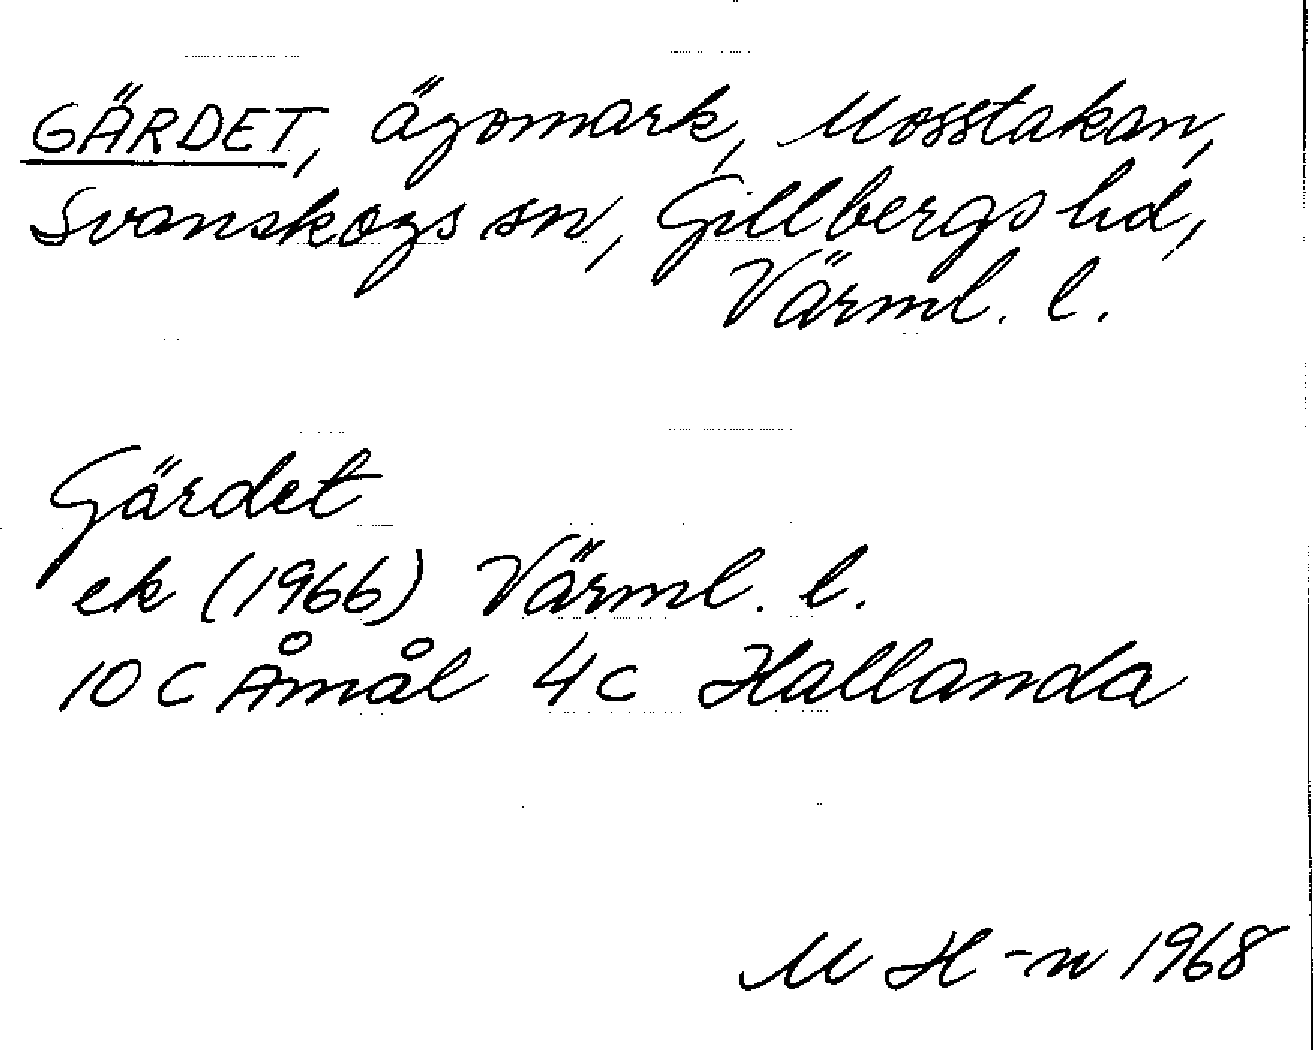 GÄRDET, ägomark, Mosstakan,
Svanskogs sn, Gillbergs hd,
Värml. l.
Gärdet
ek (1966) Värml. l.
10 C Åmål 4c Hallanda
M H-n 1968